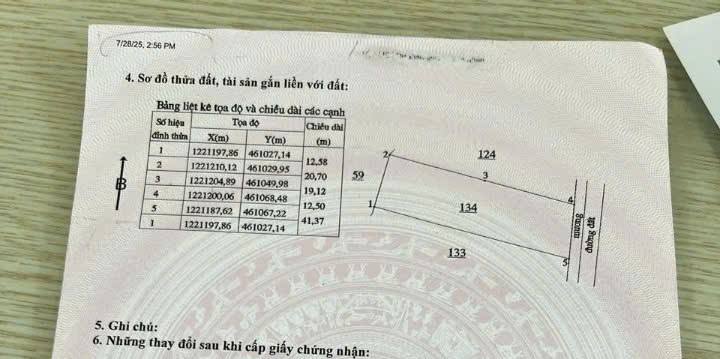 7/28/25, 2:56 PM
4. Sơ đồ thửa đất, tài sản gắn liền với đất:
Bảng liệt kê tọa độ và chiều dài các cạnh
Số hiệu đỉnh thửa Tọa độ Chiều dài (m)
X(m) Y(m)
1 1221197,86 461027,14
12,58
2 1221210,12 461029,95
20,70
3 1221204,89 461049,98
19,12
4 1221200,06 461068,48
12,50
5 1221187,62 461067,22
41,37
1 1221197,86 461027,14
B
2
124
59
3
4
1
134
mương
đường đất
133
5
5. Ghi chú:
6. Những thay đổi sau khi cấp giấy chứng nhận: